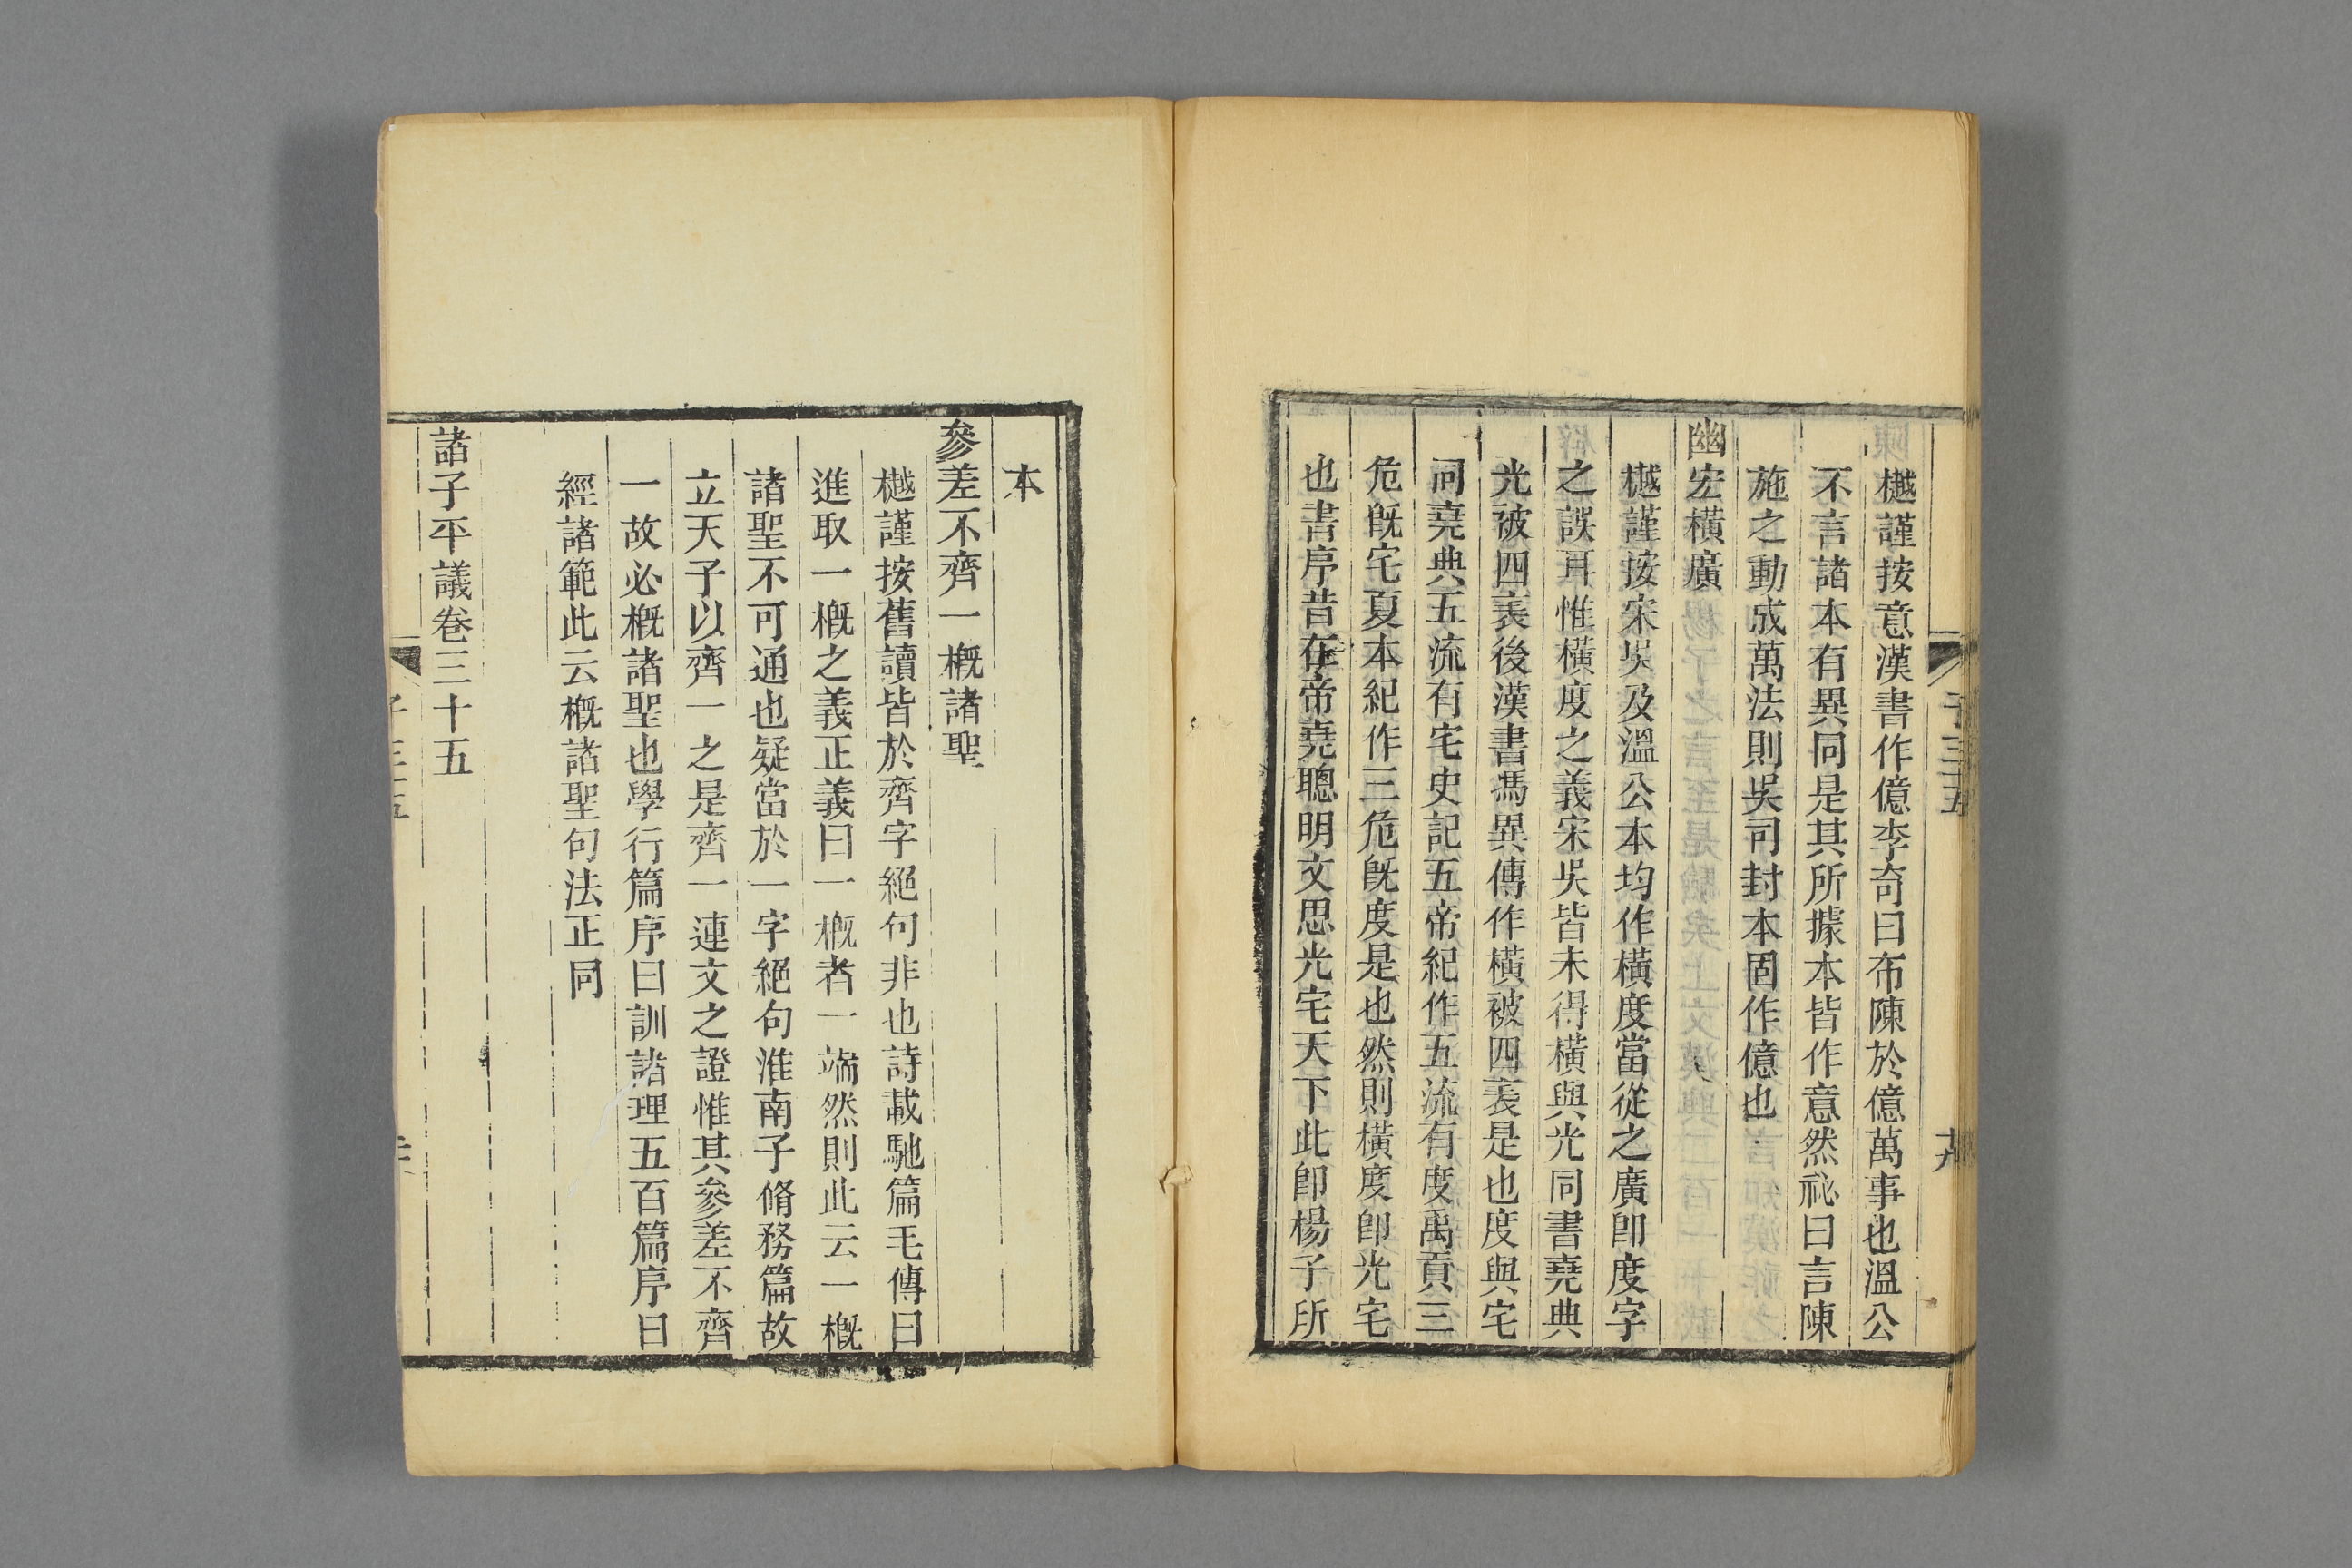 樾謹按意漢書作億李奇曰布陳於億萬事也溫公
不言諸本有異同是其所據本皆作意然祕曰言陳
施之動成萬法則吳司封本固作億也
幽宏橫廣
樾謹按宋吳及溫公本均作橫度當從之廣卽度字
之誤耳惟橫度之義宋吳皆未得橫與光同書堯典
光被四表後漢書馮異傳作橫被四表是也度與宅
同堯典五流有宅史記五帝紀作五流有度禹貢三
危旣宅夏本紀作三危旣度是也然則橫度卽光宅
也書序昔在帝堯聰明文思光宅天下此卽楊子所
子三十五
本
參差不齊一槪諸聖
樾謹按舊讀皆於齊字絕句非也詩載馳篇毛傳曰
進取一槪之義正義曰一槪者一端然則此云一槪
諸聖不可通也疑當於一字絕句淮南子脩務篇故
立天子以齊一之是齊一連文之證惟其參差不齊
一故必槪諸聖也學行篇序曰訓諸理五百篇序曰
經諸範此云槪諸聖句法正同
諸子平議卷三十五